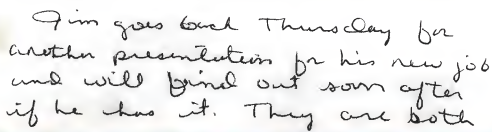 Jim goes back Thursday for
another presentation for his new job
and will find out soon after
if he has it. They are both